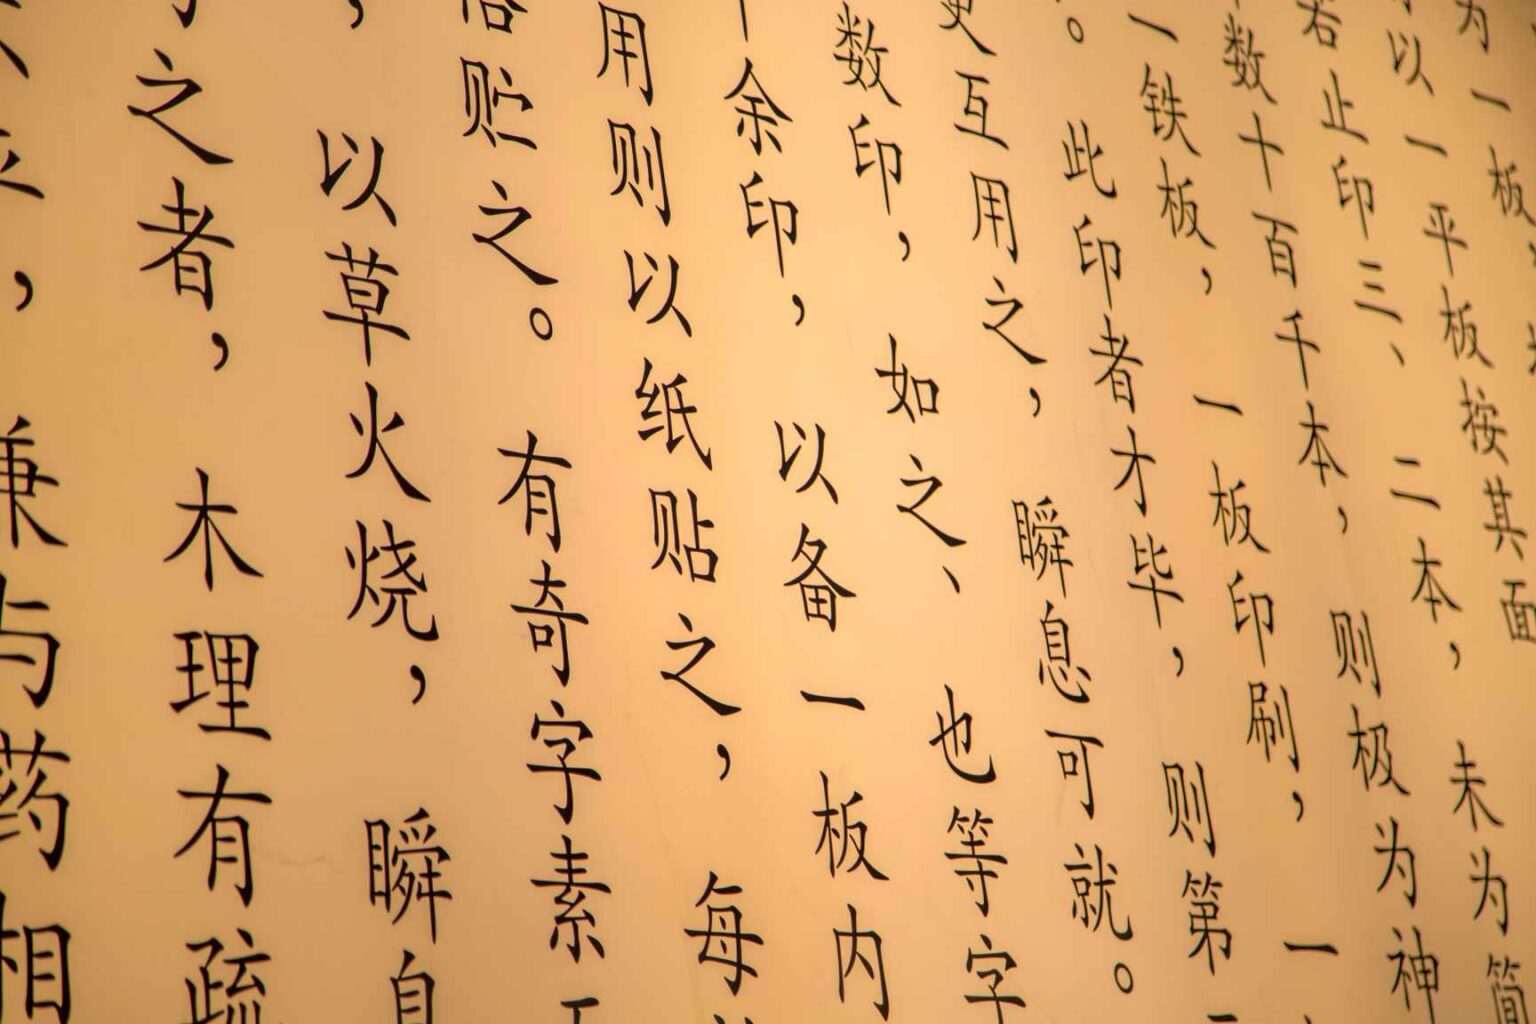 为一板
以一平板按其面
若止印三、二本，未为简
数十百千本，则极为神
一铁板，一板印刷，一
。此印者才毕，则第
更互用之，瞬息可就。
数印，如之、也等字
余印，以备一板内
用则以纸贴之，每
贮之。有奇字素
，以草火烧，瞬息
之者，木理有疏
平，兼与药相